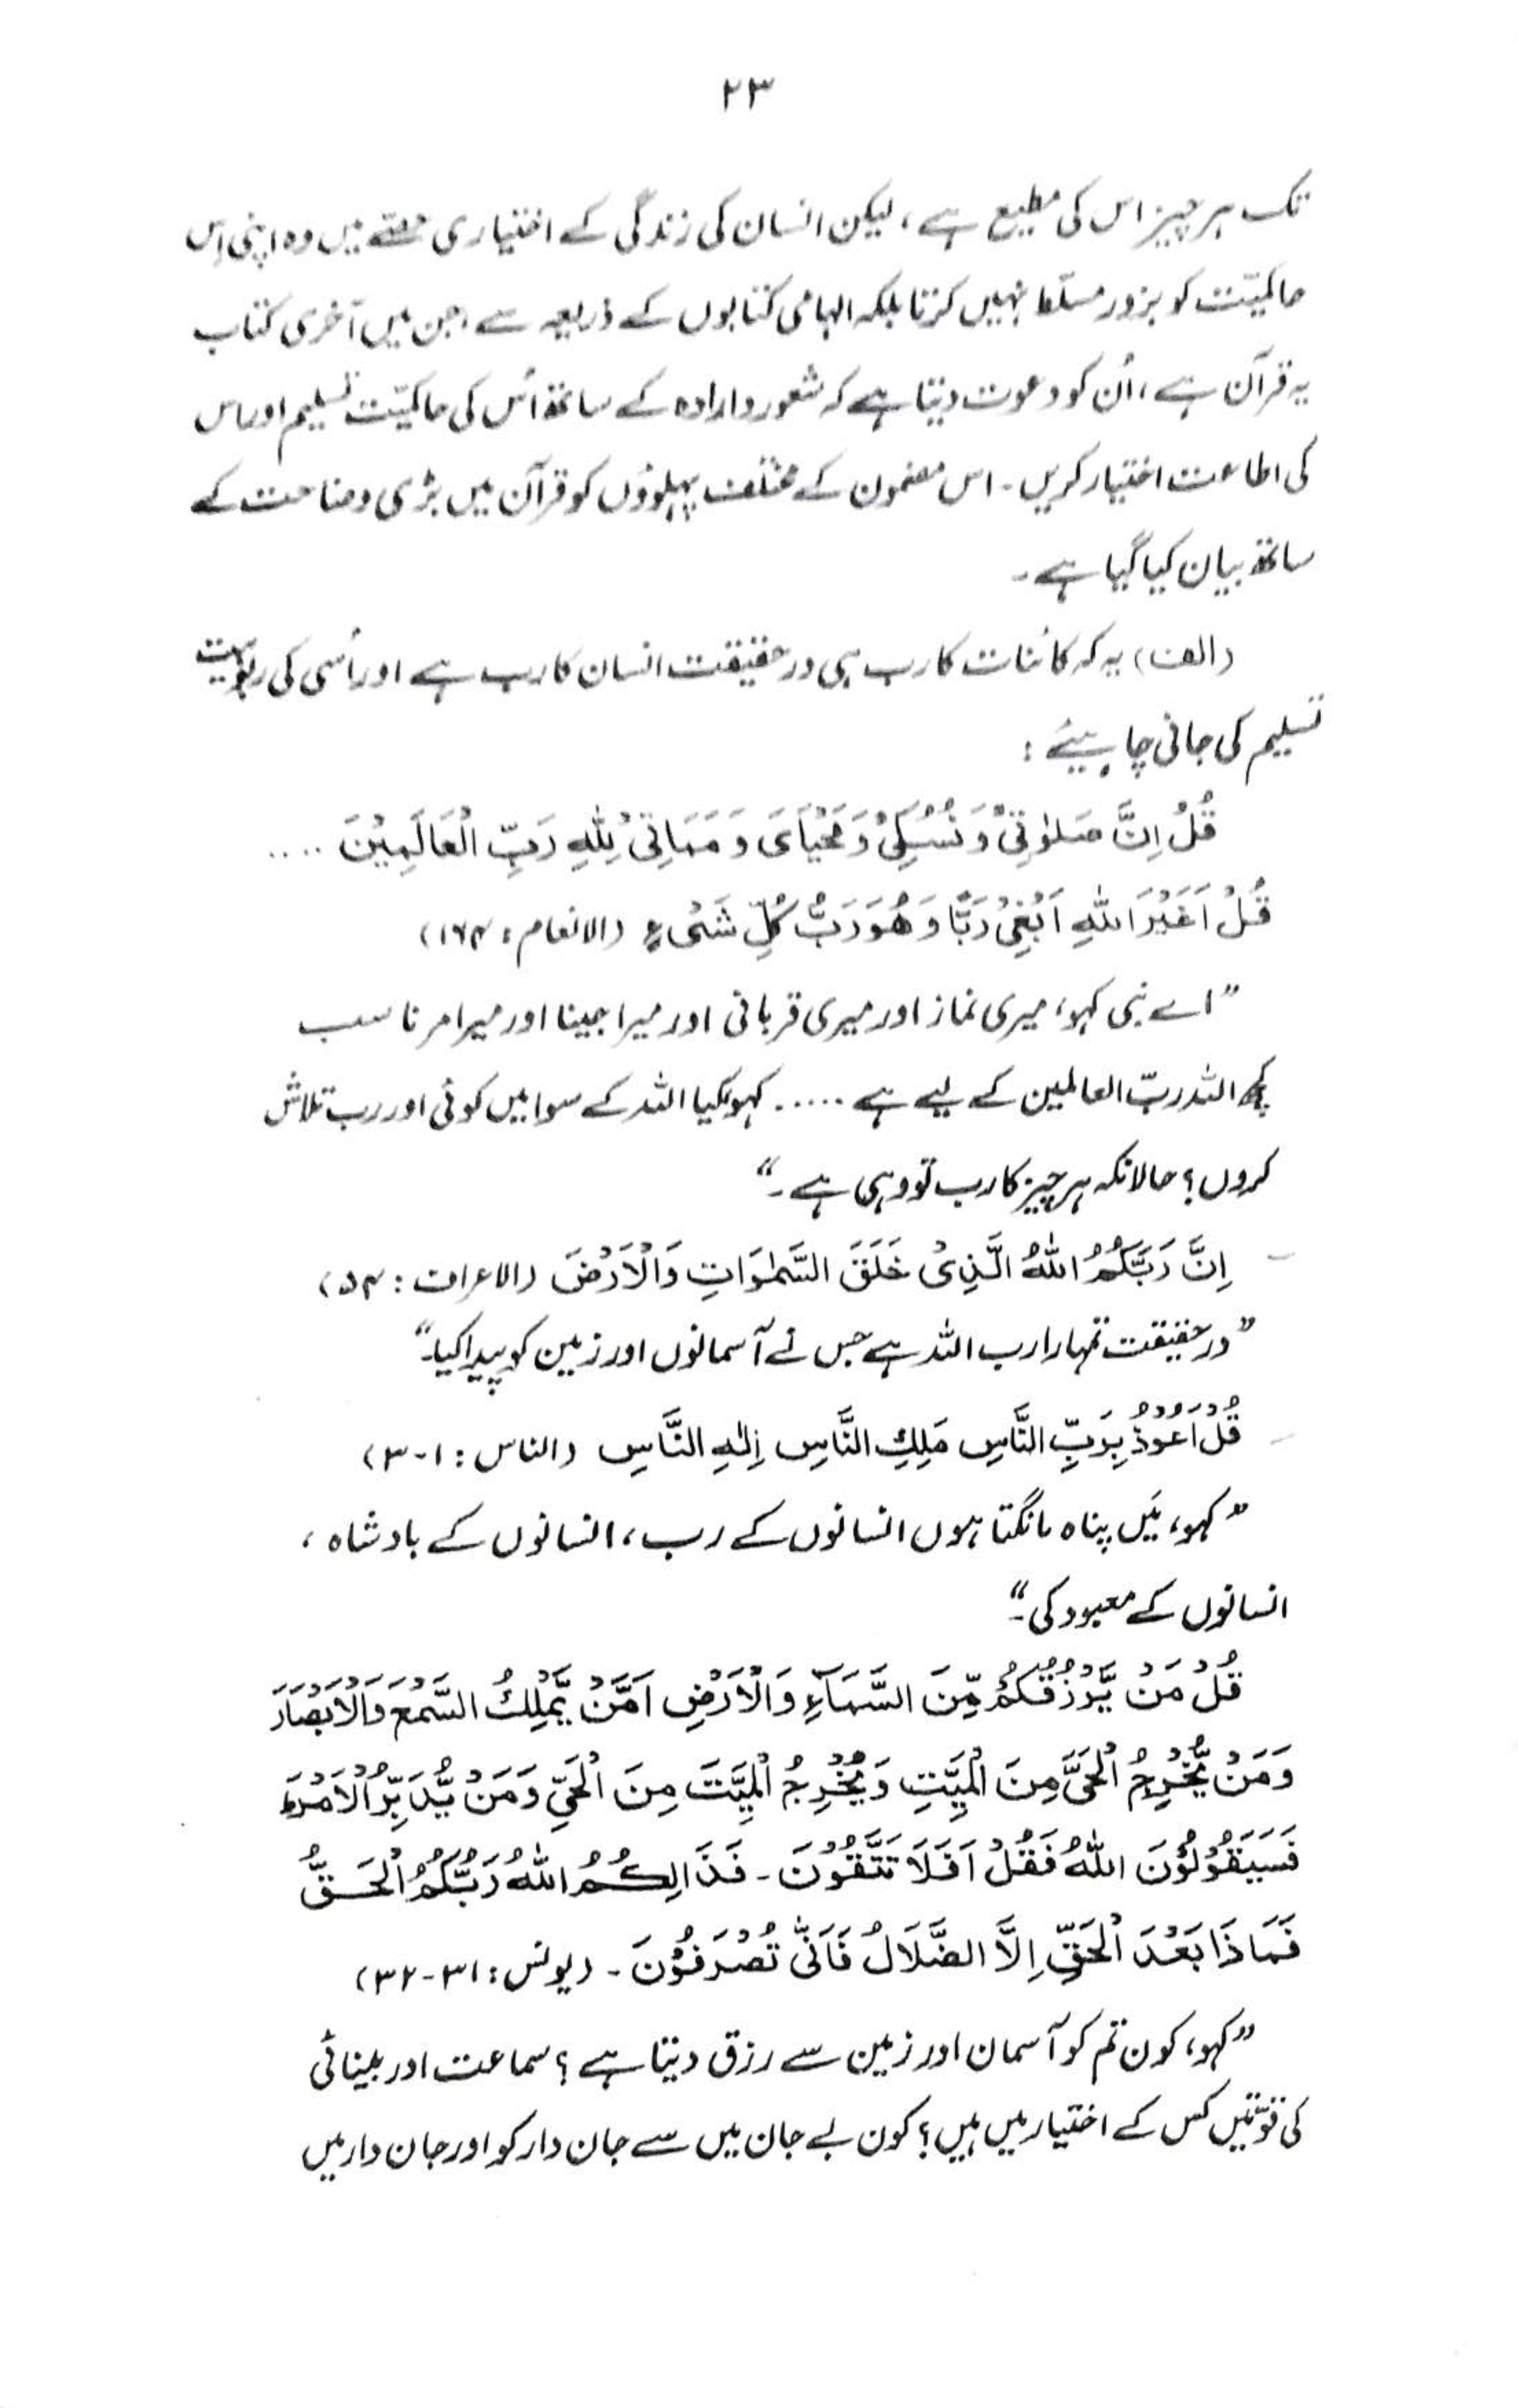 ۲۳
تک ہر چیز اس کی مطیع ہے، لیکن انسان کی زندگی کے اختیاری حصّے میں وہ اپنی اِس
حاکمیّت کو بزور مسلّط نہیں کرتا بلکہ الہامی کتابوں کے ذریعہ سے، جن میں آخری کتاب
یہ قرآن ہے، اُن کو دعوت دیتا ہے کہ شعور و ارادہ کے ساتھ اُس کی حاکمیّت تسلیم اور اس
کی اطاعت اختیار کریں۔ اس مضمون کے مختلف پہلوؤں کو قرآن میں بڑی وضاحت کے
ساتھ بیان کیا گیا ہے۔
(الف) یہ کہ کائنات کا رب ہی درحقیقت انسان کا رب ہے اور اُسی کی ربوبیّت
تسلیم کی جانی چاہیئے :
قُلْ اِنَّ صَلوٰتِیْ وَ نُسُکِیْ وَ مَحْیَایَ وَ مَمَاتِیْ لِلّٰہِ رَبِّ الْعَالَمِیْنَ ....
قُلْ اَغَیْرَ اللّٰہِ اَبْغِیْ رَبًّا وَ ھُوَ رَبُّ کُلِّ شَیْءٍ (الانعام : ۱۶۴)
”اے نبی کہو، میری نماز اور میری قربانی اور میرا جینا اور میرا مرنا سب
کچھ اللہ ربّ العالمین کے لیے ہے ..... کہو، کیا اللہ کے سوا میں کوئی اور رب تلاش
کروں؟ حالانکہ ہر چیز کا رب تو وہی ہے۔“
اِنَّ رَبَّکُمُ اللّٰہُ الَّذِیْ خَلَقَ السَّمٰوَاتِ وَالْاَرْضَ (الاعراف : ۵۴)
”درحقیقت تمہارا رب اللہ ہے جس نے آسمانوں اور زمین کو پیدا کیا۔“
قُلْ اَعُوْذُ بِرَبِّ النَّاسِ مَلِکِ النَّاسِ اِلٰہِ النَّاسِ (الناس : ۱-۳)
”کہو، مَیں پناہ مانگتا ہوں انسانوں کے رب، انسانوں کے بادشاہ،
انسانوں کے معبود کی۔“
قُلْ مَنْ یَّرْزُقُکُمْ مِّنَ السَّمَآءِ وَالْاَرْضِ اَمَّنْ یَّمْلِکُ السَّمْعَ وَالْاَبْصَارَ
وَمَنْ یُّخْرِجُ الْحَیَّ مِنَ الْمَیِّتِ وَیُخْرِجُ الْمَیِّتَ مِنَ الْحَیِّ وَمَنْ یُّدَبِّرُ الْاَمْرَ
فَسَیَقُوْلُوْنَ اللّٰہُ فَقُلْ اَفَلَا تَتَّقُوْنَ۔ فَذَالِکُمُ اللّٰہُ رَبُّکُمُ الْحَقُّ
فَمَاذَا بَعْدَ الْحَقِّ اِلَّا الضَّلَالُ فَاَنّٰی تُصْرَفُوْنَ۔ (یونس : ۳۱-۳۲)
”کہو، کون تم کو آسمان اور زمین سے رزق دیتا ہے؟ سماعت اور بینائی
کی قوّتیں کس کے اختیار میں ہیں؟ کون بے جان میں سے جان دار کو اور جان دار میں